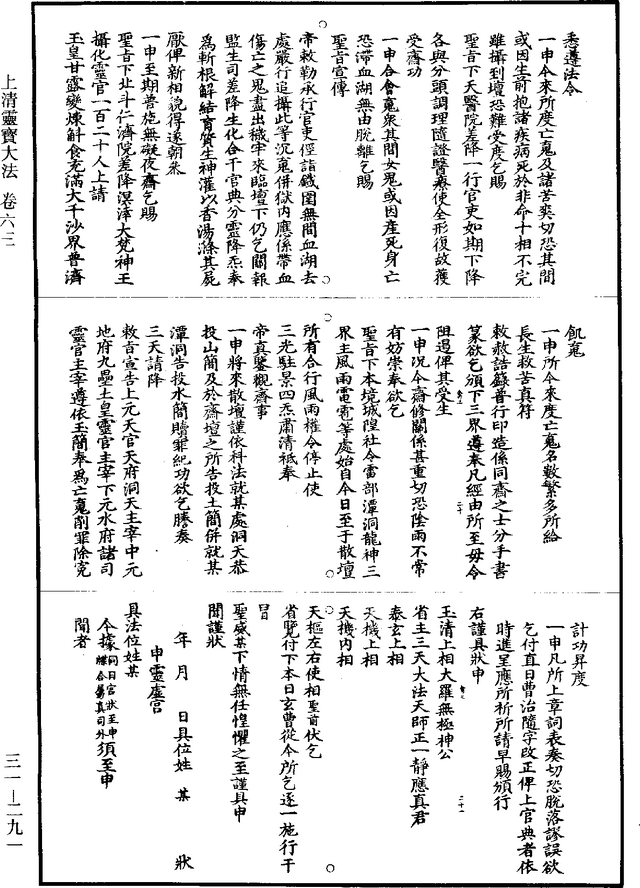 悉遵法令
一申今來所度亡䰟及諸苦爽切恐其間
或因生前抱諸疾病死於非命十相不完
雖攝到壇恐難受度乞賜
聖旨下天醫院差降一行官吏如期下降
各與分頭調理隨證醫療使全形復故獲
受齋功
一申合會䰟衆其間女䰟或因產死身亡
恐滯血湖無由脫離乞賜
聖旨宣傳
帝敕勒承行官吏徑詣鐵圍無間血湖去
處嚴行追攝此等沉䰟併獄内應係帶血
傷亡之䰟盡出穢牢來臨壇下仍乞關報
監生司差降生化合干官典分靈降炁奉
爲斬根解結育質生神灌以香湯滌其屍
厭俾新相貌得遂朝叅
一申至期普施無礙夜齋乞賜
聖旨下北斗仁濟院差降溟涬大梵神王
攝化靈官一百二十人上請
玉皇甘露變煉斛食充滿大千沙界普濟
飢䰟
一申所今來度亡䰟名數繁多所給
長生救苦真符
敕赦誥籙普行印造係同齋之士分手書
篆欲乞頒下三界遵奉凡經由所至毋令
阻遏俾其受生
一申况今齋修關係甚重切恐陰雨不常
有妨崇奉欲乞
聖旨下本境城隍社令雷部潭洞龍神三
界主風雨電雹等處始自今日至于散壇
所有合行風雨權令停止使
三光駐景四炁肅清袛奉
帝真鑒觀齋事
一申將來散壇謹依科法就某處洞天恭
投山簡及於齋壇之所告投土簡併就某
潭洞告投水簡贖罪紀功欲乞騰奏
三天請降
敕旨宣告上元天官天府洞天主宰中元
地府九壘土皇靈官主宰下元水府諸司
靈官主宰遵依玉簡奉爲亡䰟削罪除𡨚
計功昇度
一申凡所上章詞表奏切恐脫落謬誤欲
乞付直日曹治隨字改正俾上官典者依
時進呈應所祈所請早賜頒行
右謹具狀申
玉清上相大羅無極神公
省主三天大法天師正一靜應真君
泰玄上相
天機上相
天機内相
天樞左右使相聖前伏乞
省覽付下本日玄曹從今所乞逐一施行干
冒
聖威某下情無任惶懼之至謹具申
聞謹狀
年 月 日具位姓 某 狀
申靈虛宫
具法位姓某
今據須至申
聞者
上清靈寶大法 卷六三
三一—二九一